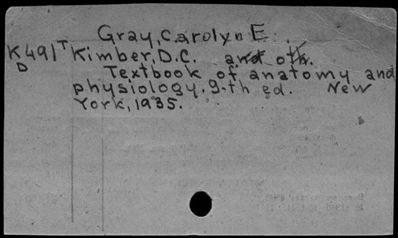 Gray, Carolyn E.
K491T Kimber, D.C. and oth.
D Textbook of anatomy and
physiology. 9-th ed. New
York, 1935.